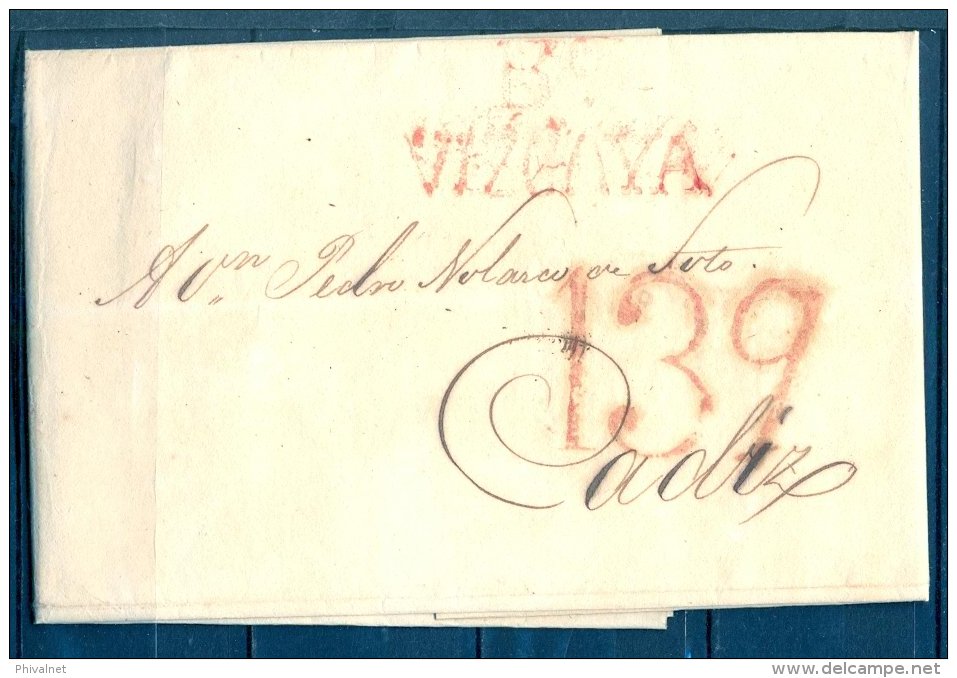 B
VIZCAYA
A Dn Pedro Nolasco de Soto.
139
Cadiz
Phivalnet
delcampe.net